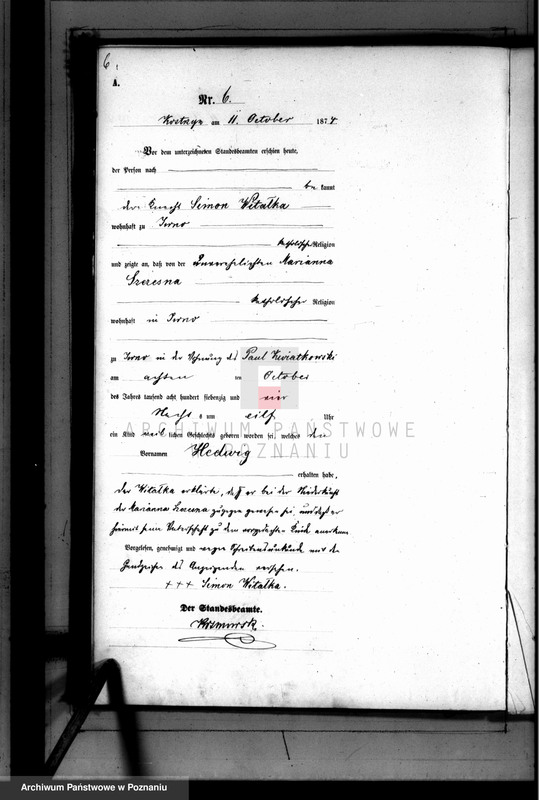 6.
A.
Nr. 6.
am 11. October 1874
Vor dem unterzeichneten Standesbeamten erschien heute,
der Person nach
be kannt
der Knecht Simon Witalka
wohnhaft zu
katholischer Religion
und zeigte an, daß von der unverehelichten Marianna
Szczesna
katholischer Religion
wohnhaft in
zu in der Wohnung des Paul Kwiatkowski
am achten ten October
des Jahres tausend acht hundert siebenzig und vier
Nachts um eilf Uhr
ein Kind weiblichen Geschlechts geboren worden sei, welches den
Vornamen Hedwig
erhalten habe,
Der Witalka erklärte, daß er bei der Niederkunft
der Marianna Szczesna zugegen gewesen sei und daß er
hiermit seine Vaterschaft zu dem vorgedachten Kinde anerkenne
Vorgelesen, genehmigt und wegen Schreibensunkunde mit den
Handzeichen des Anzeigenden versehen.
+++ Simon Witalka.
Der Standesbeamte.
ARCHIWUM PAŃSTWOWE
POZNANIU
Archiwum Państwowe w Poznaniu